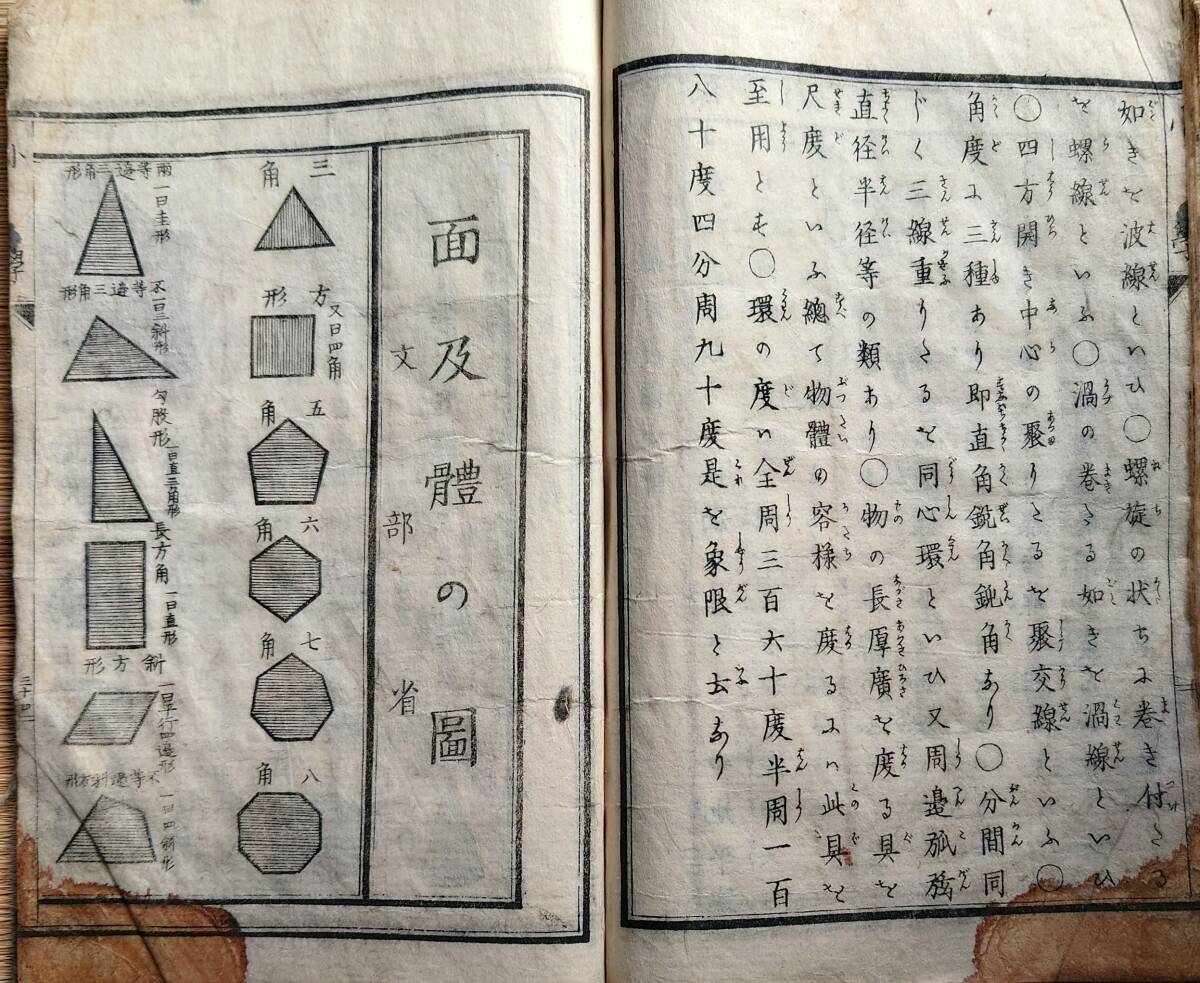 如きを波線といひ〇螺旋の状ちに巻き付たる
を螺線といふ〇渦の巻たる如きを渦線といひ
〇四方開き中心の聚りたるを聚交線といふ〇
角度に三種あり即直角鋭角鈍角なり〇分間同
じく三線重りたるを同心環といひ又周邊弧
直径半径等の類あり〇物の長厚廣を度る具を
尺度といふ總て物體の容様を度るにハ此具を
至用とす〇環の度ハ全周三百六十度半周一百
八十度四分周九十度是を象限と云なり
面及體の圖
文部省
三角
方形
又曰四角
五角
六角
七角
八角
兩等邊三角形
一曰圭形
不等邊三角形
一曰三斜形
勾股形
一曰直三角形
長方角
一曰直形
斜方形
一曰平行四邊形
不等邊斜方形
一曰四斜形
三十四